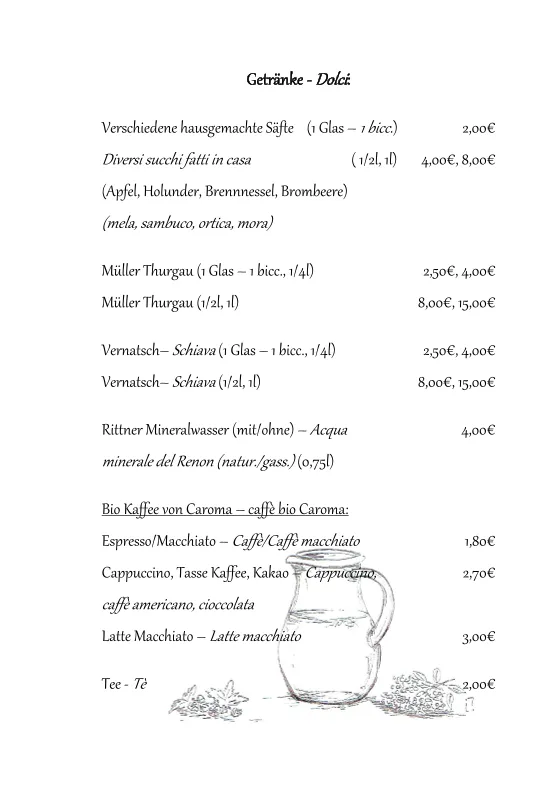 Getränke - Dolci:
Verschiedene hausgemachte Säfte (1 Glas – 1 bicc.) 2,00€
Diversi succhi fatti in casa ( 1/2l, 1l) 4,00€, 8,00€
(Apfel, Holunder, Brennnessel, Brombeere)
(mela, sambuco, ortica, mora)
Müller Thurgau (1 Glas – 1 bicc., 1/4l) 2,50€, 4,00€
Müller Thurgau (1/2l, 1l) 8,00€, 15,00€
Vernatsch– Schiava (1 Glas – 1 bicc., 1/4l) 2,50€, 4,00€
Vernatsch– Schiava (1/2l, 1l) 8,00€, 15,00€
Rittner Mineralwasser (mit/ohne) – Acqua 4,00€
minerale del Renon (natur./gass.) (0,75l)
Bio Kaffee von Caroma – caffè bio Caroma:
Espresso/Macchiato – Caffè/Caffè macchiato 1,80€
Cappuccino, Tasse Kaffee, Kakao – Cappuccino, 2,70€
caffè americano, cioccolata
Latte Macchiato – Latte macchiato 3,00€
Tee - Tè 2,00€